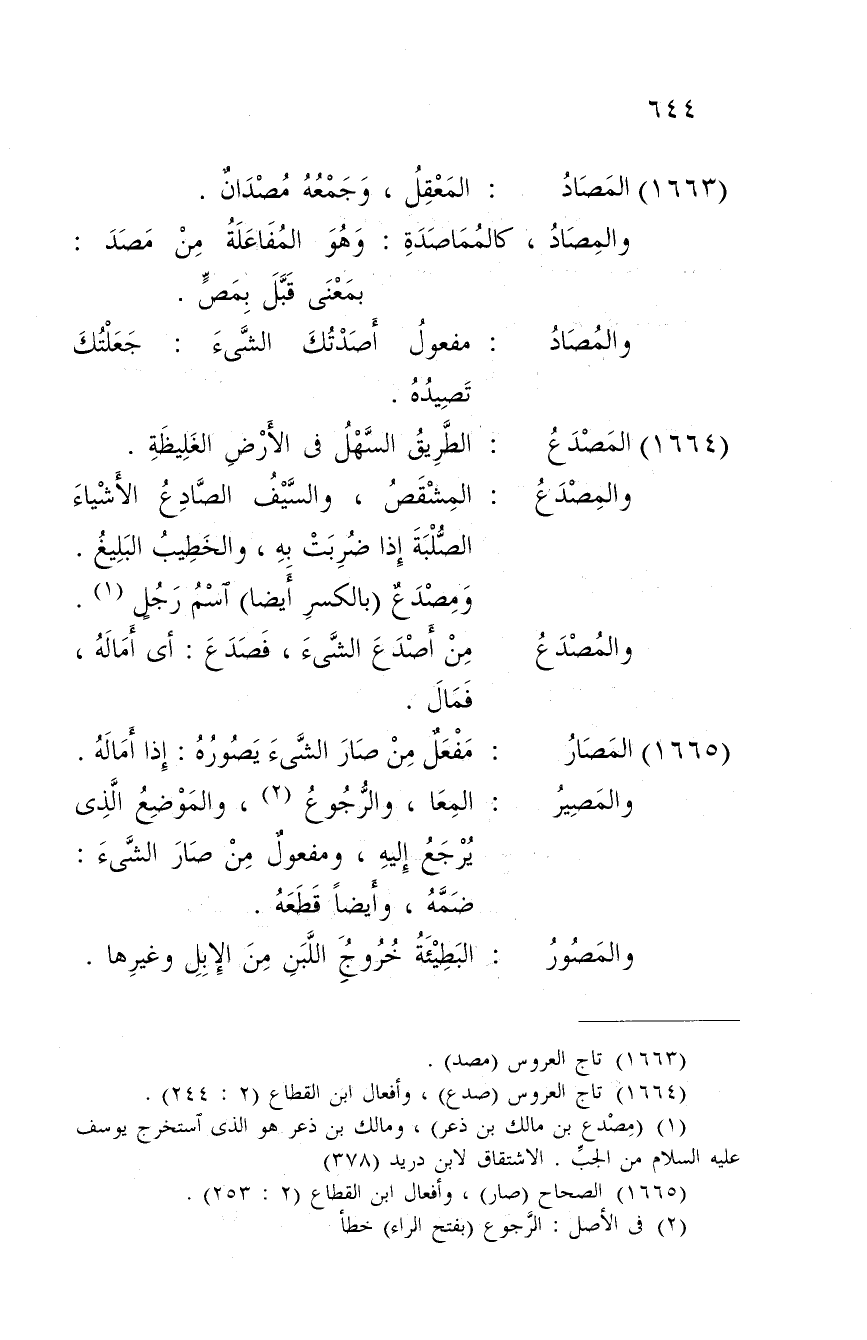 ٦٤٤
(١٦٦٣) المَصَادُ : المَعْقِلُ ، وَجَمْعُهُ مُصْدَانٌ .
والمِصَادُ ، كالمُمَاصَدَةِ : وَهُوَ المُفَاعَلَةُ مِنْ مَصَدَ :
بمَعْنَى قَبَّلَ بِمَصٍّ .
والمُصَادُ : مفعولُ أَصَدْتُكَ الشَّىءَ : جَعَلْتُكَ
تَصِيدُهُ .
(١٦٦٤) المَصْدَعُ : الطَّرِيقُ السَّهْلُ فى الأَرْضِ الغَلِيظَةِ .
والمِصْدَعُ : المِشْقَصُ ، والسَّيْفُ الصَّادِعُ الأَشْياءَ
الصُّلْبَةَ إِذا ضُرِبَتْ بِهِ ، والخَطِيبُ البَلِيغُ .
وَمِصْدَعٌ (بالكسرِ أَيضا) ٱسْمُ رَجُلٍ (١) .
والمُصْدَعُ مِنْ أَصْدَعَ الشَّىءَ ، فَصَدَعَ : أى أَمَالَهُ ،
فَمَالَ .
(١٦٦٥) المَصَارُ : مَفْعَلٌ مِنْ صَارَ الشَّىءَ يَصُورُهُ : إِذا أَمَالَهُ .
والمَصِيرُ : المِعَا ، والرُّجُوعُ (٢) ، والمَوْضِعُ الَّذِى
يُرْجَعُ إِليهِ ، ومفعولٌ مِنْ صَارَ الشَّىءَ :
ضَمَّهُ ، وأَيضاً قَطَعَهُ .
والمَصُورُ : البَطِيْئَةُ خُرُوجِ اللَّبَنِ مِنَ الإِبِلِ وغيرِها .
(١٦٦٣) تاج العروس (مصد) .
(١٦٦٤) تاج العروس (صدع) ، وأفعال ابن القطاع (٢ : ٢٤٤) .
(١) (مِصْدع بن مالك بن ذعر) ، ومالك بن ذعر هو الذى ٱستخرج يوسف
عليه السلام من الجبِّ . الاشتقاق لابن دريد (٣٧٨)
(١٦٦٥) الصحاح (صار) ، وأفعال ابن القطاع (٢ : ٢٥٣) .
(٢) فى الأصل : الرَّجوع (بفتح الراء) خطأ